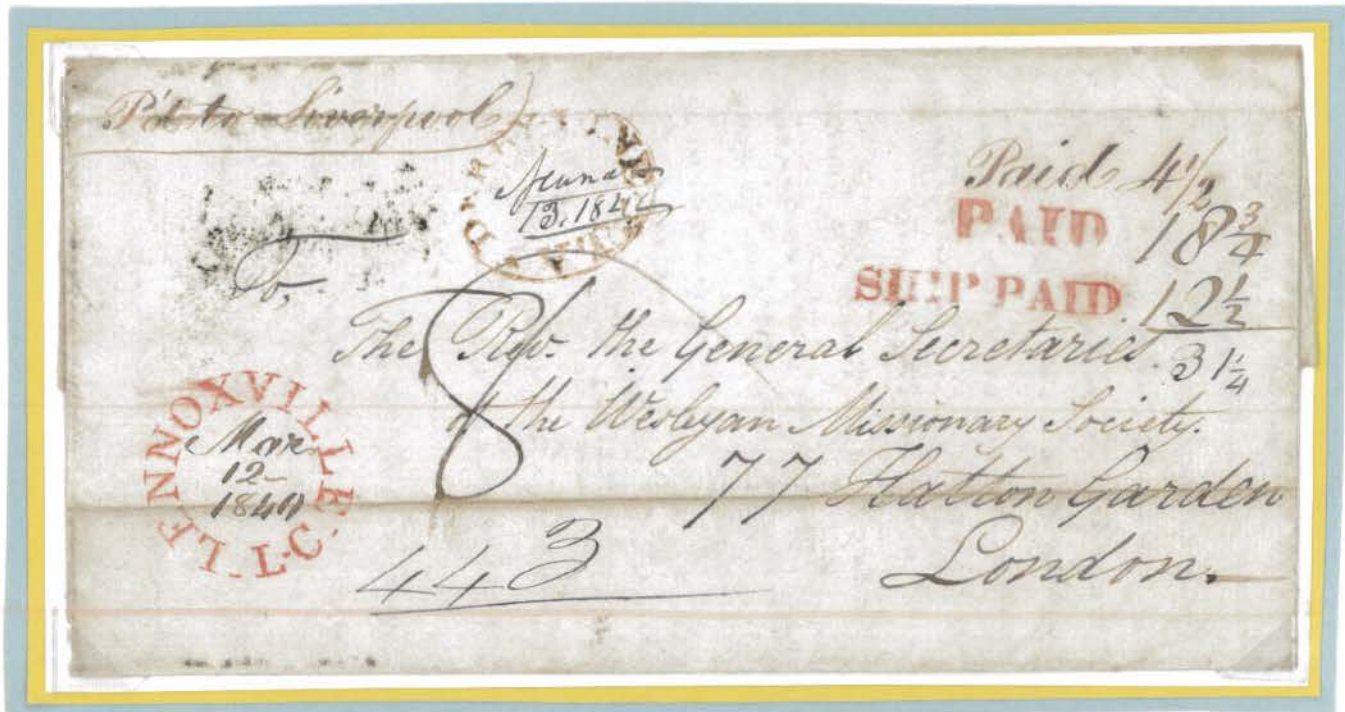 P'd to Liverpool
Paid 4 1/2
PAID 18 3/4
SHIP PAID 12 1/2
31 1/4
13, 184
To,
The Rev. the General Secretaries
of the Wesleyan Missionary Society.
77 Hatton Garden
London.
LENNOXVILLE L.C.
Mar
12
1840
8
443